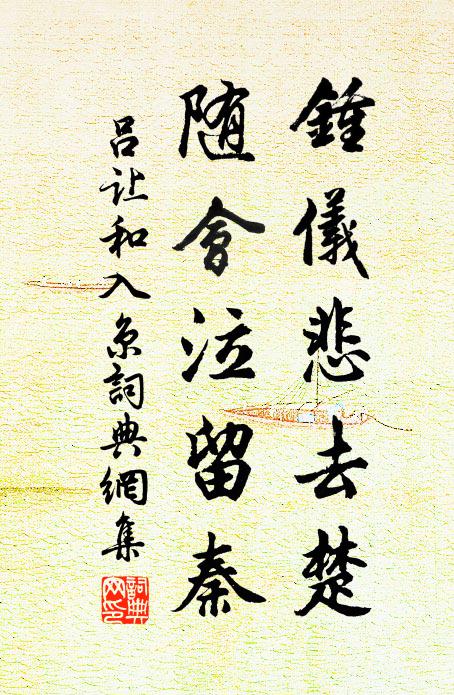 鍾儀悲去楚
随會泣留秦
吕让和入京詞典網集
詞典網印